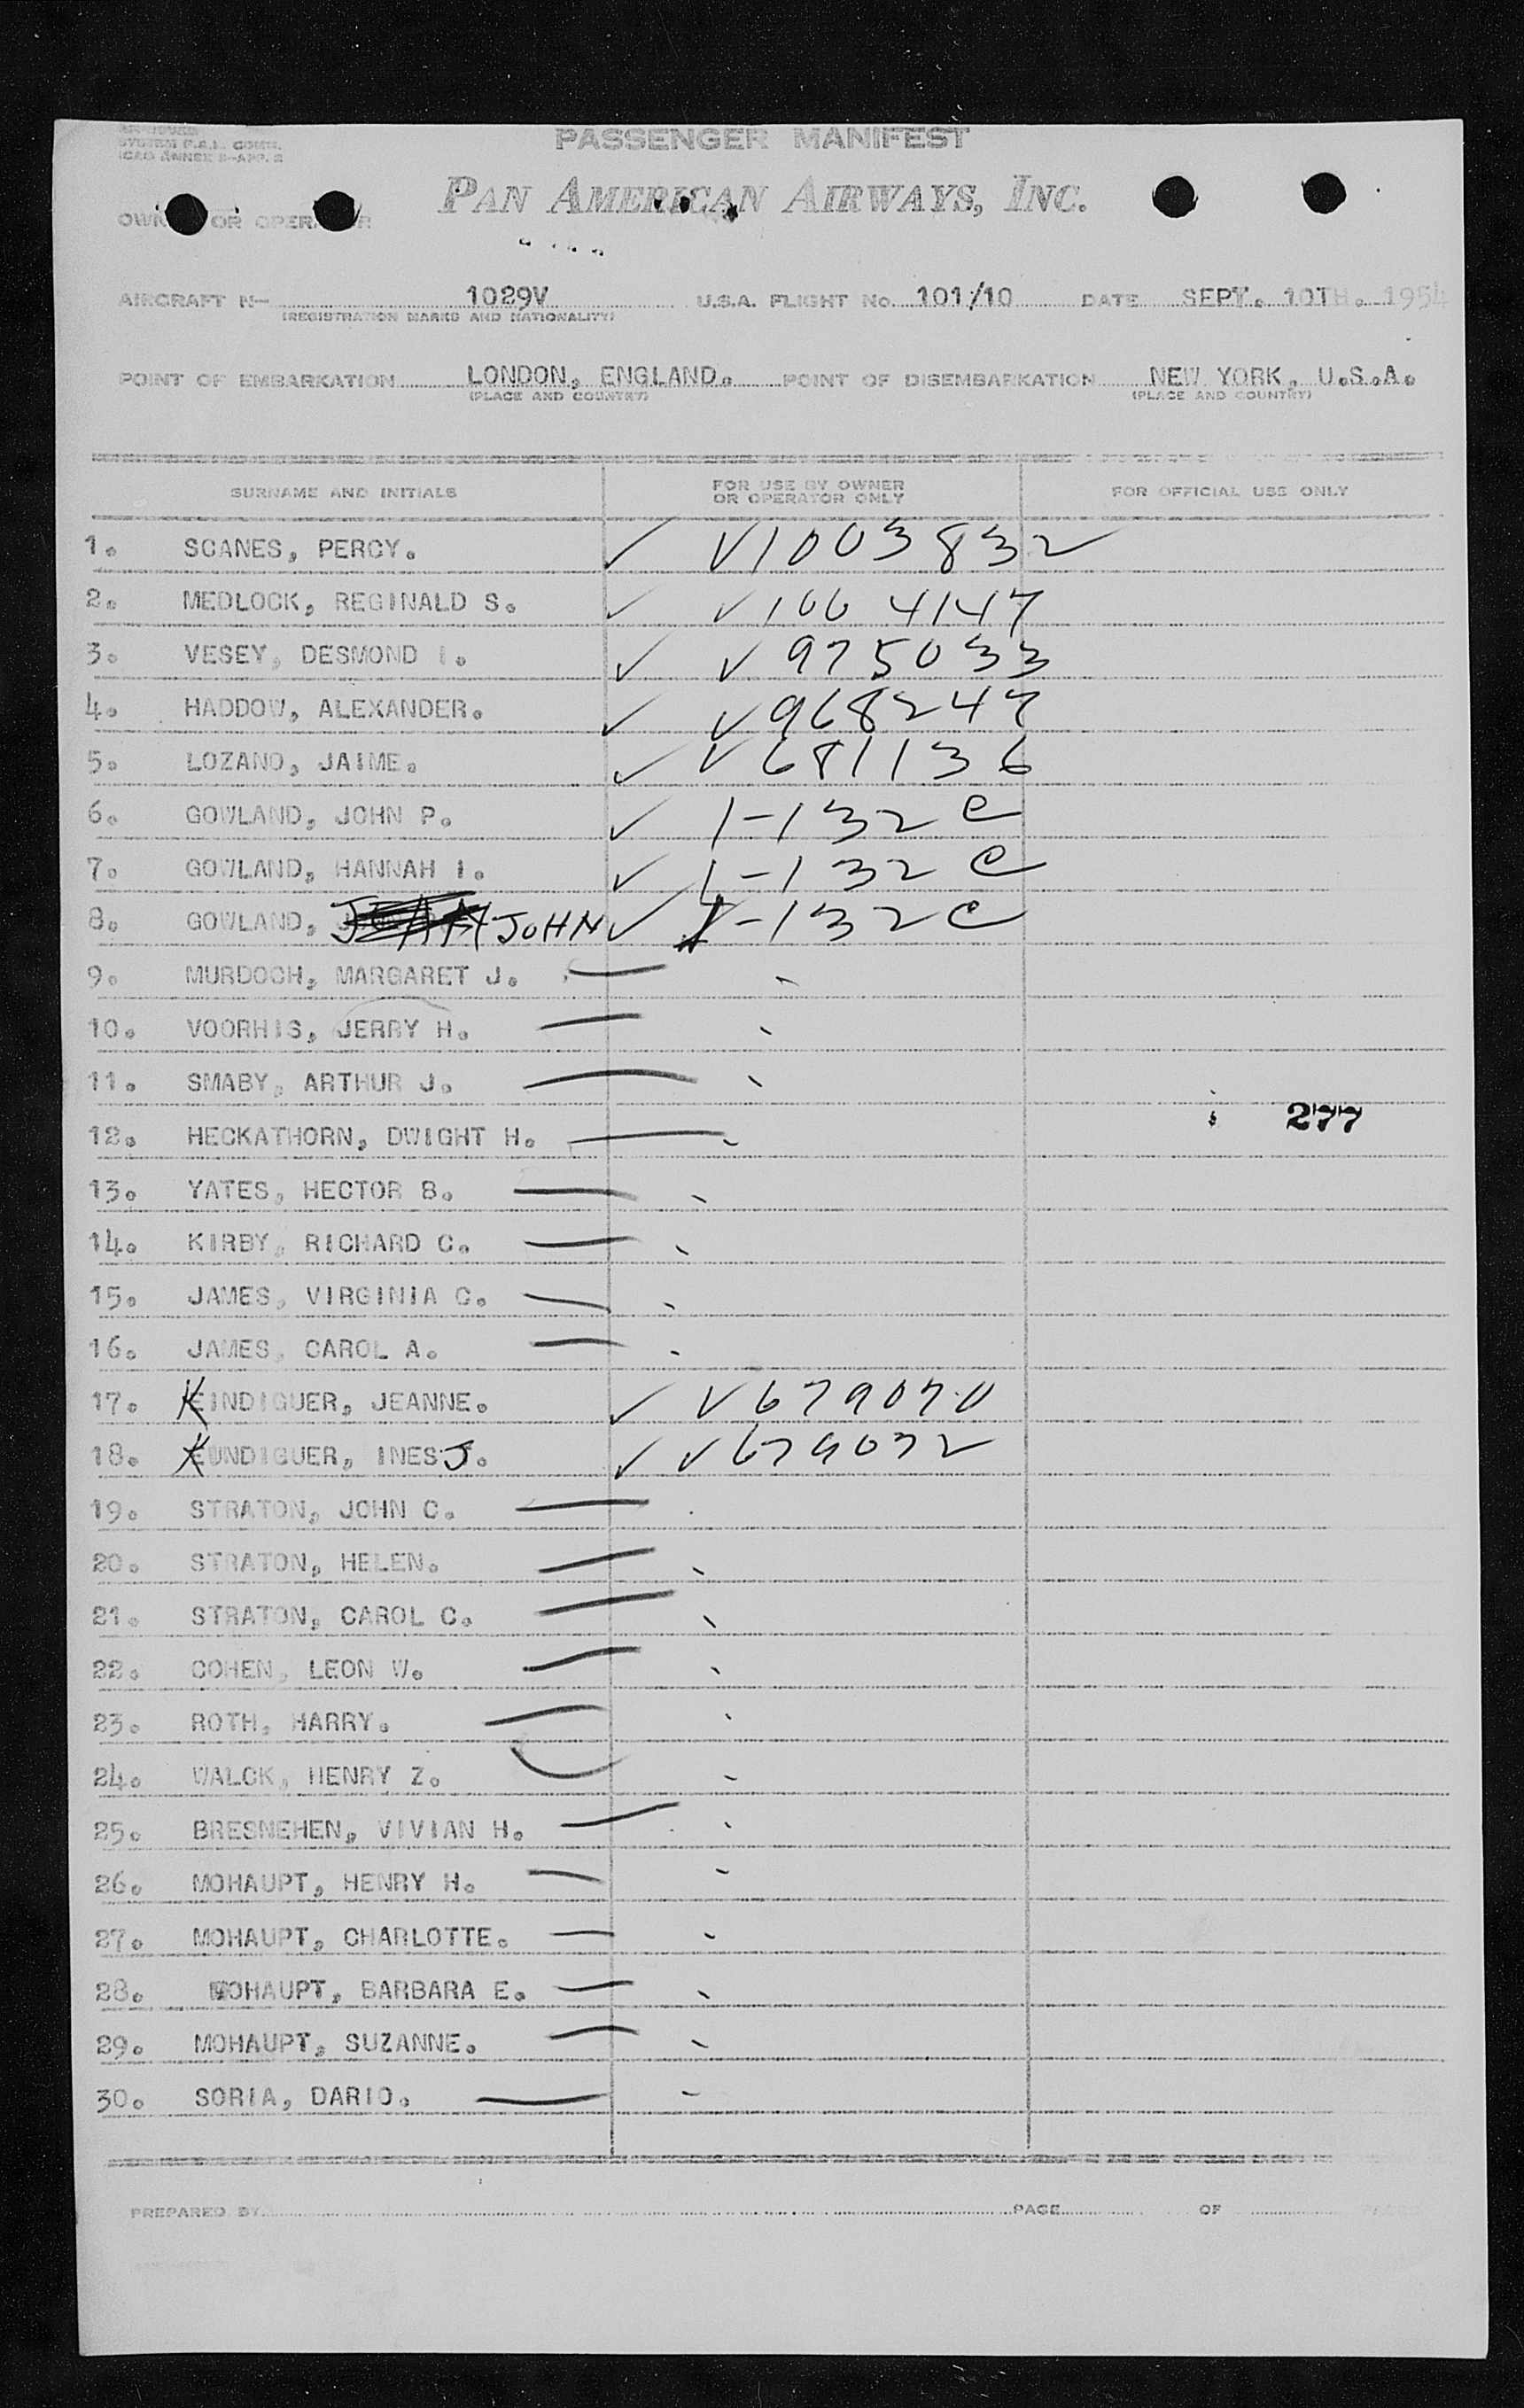 PASSENGER MANIFEST
SYSTEM F.A.L. COMM.
ICAO ANNEX 9-APP. 2
PAN AMERICAN AIRWAYS, INC.
OR
AIRCRAFT N- 1029V U.S.A. FLIGHT No. 101/10 DATE SEPT. 10TH. 1954
(REGISTRATION MARKS AND NATIONALITY)
POINT OF EMBARKATION LONDON, ENGLAND. POINT OF DISEMBARKATION NEW YORK, U.S.A.
(PLACE AND COUNTRY) (PLACE AND COUNTRY)
SURNAME AND INITIALS FOR USE BY OWNER OR OPERATOR ONLY FOR OFFICIAL USE ONLY
1. SCANES, PERCY. ✓ V1003832
2. MEDLOCK, REGINALD S. ✓ V100 4147
3. VESEY, DESMOND I. ✓ V975033
4. HADDOW, ALEXANDER. ✓ V968247
5. LOZANO, JAIME. ✓ V681136
6. GOWLAND, JOHN P. ✓ 1-132 C
7. GOWLAND, HANNAH I. ✓ 1-132 C
8. GOWLAND, JOHN ✓ 1-132 C
9. MURDOCH, MARGARET J.
10. VOORHIS, JERRY H.
11. SMABY, ARTHUR J.
277
12. HECKATHORN, DWIGHT H.
13. YATES, HECTOR B.
14. KIRBY, RICHARD C.
15. JAMES, VIRGINIA C.
16. JAMES, CAROL A.
17. KINDIGUER, JEANNE. ✓ V679070
18. KUNDIGUER, INES J. ✓ V679072
19. STRATON, JOHN C.
20. STRATON, HELEN.
21. STRATON, CAROL C.
22. COHEN, LEON W.
23. ROTH, HARRY.
24. WALCK, HENRY Z.
25. BRESNEHEN, VIVIAN H.
26. MOHAUPT, HENRY H.
27. MOHAUPT, CHARLOTTE.
28. MOHAUPT, BARBARA E.
29. MOHAUPT, SUZANNE.
30. SORIA, DARIO.
PREPARED BY PAGE OF